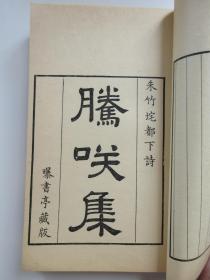 朱竹垞都下詩
騰咲集
曝書亭藏版